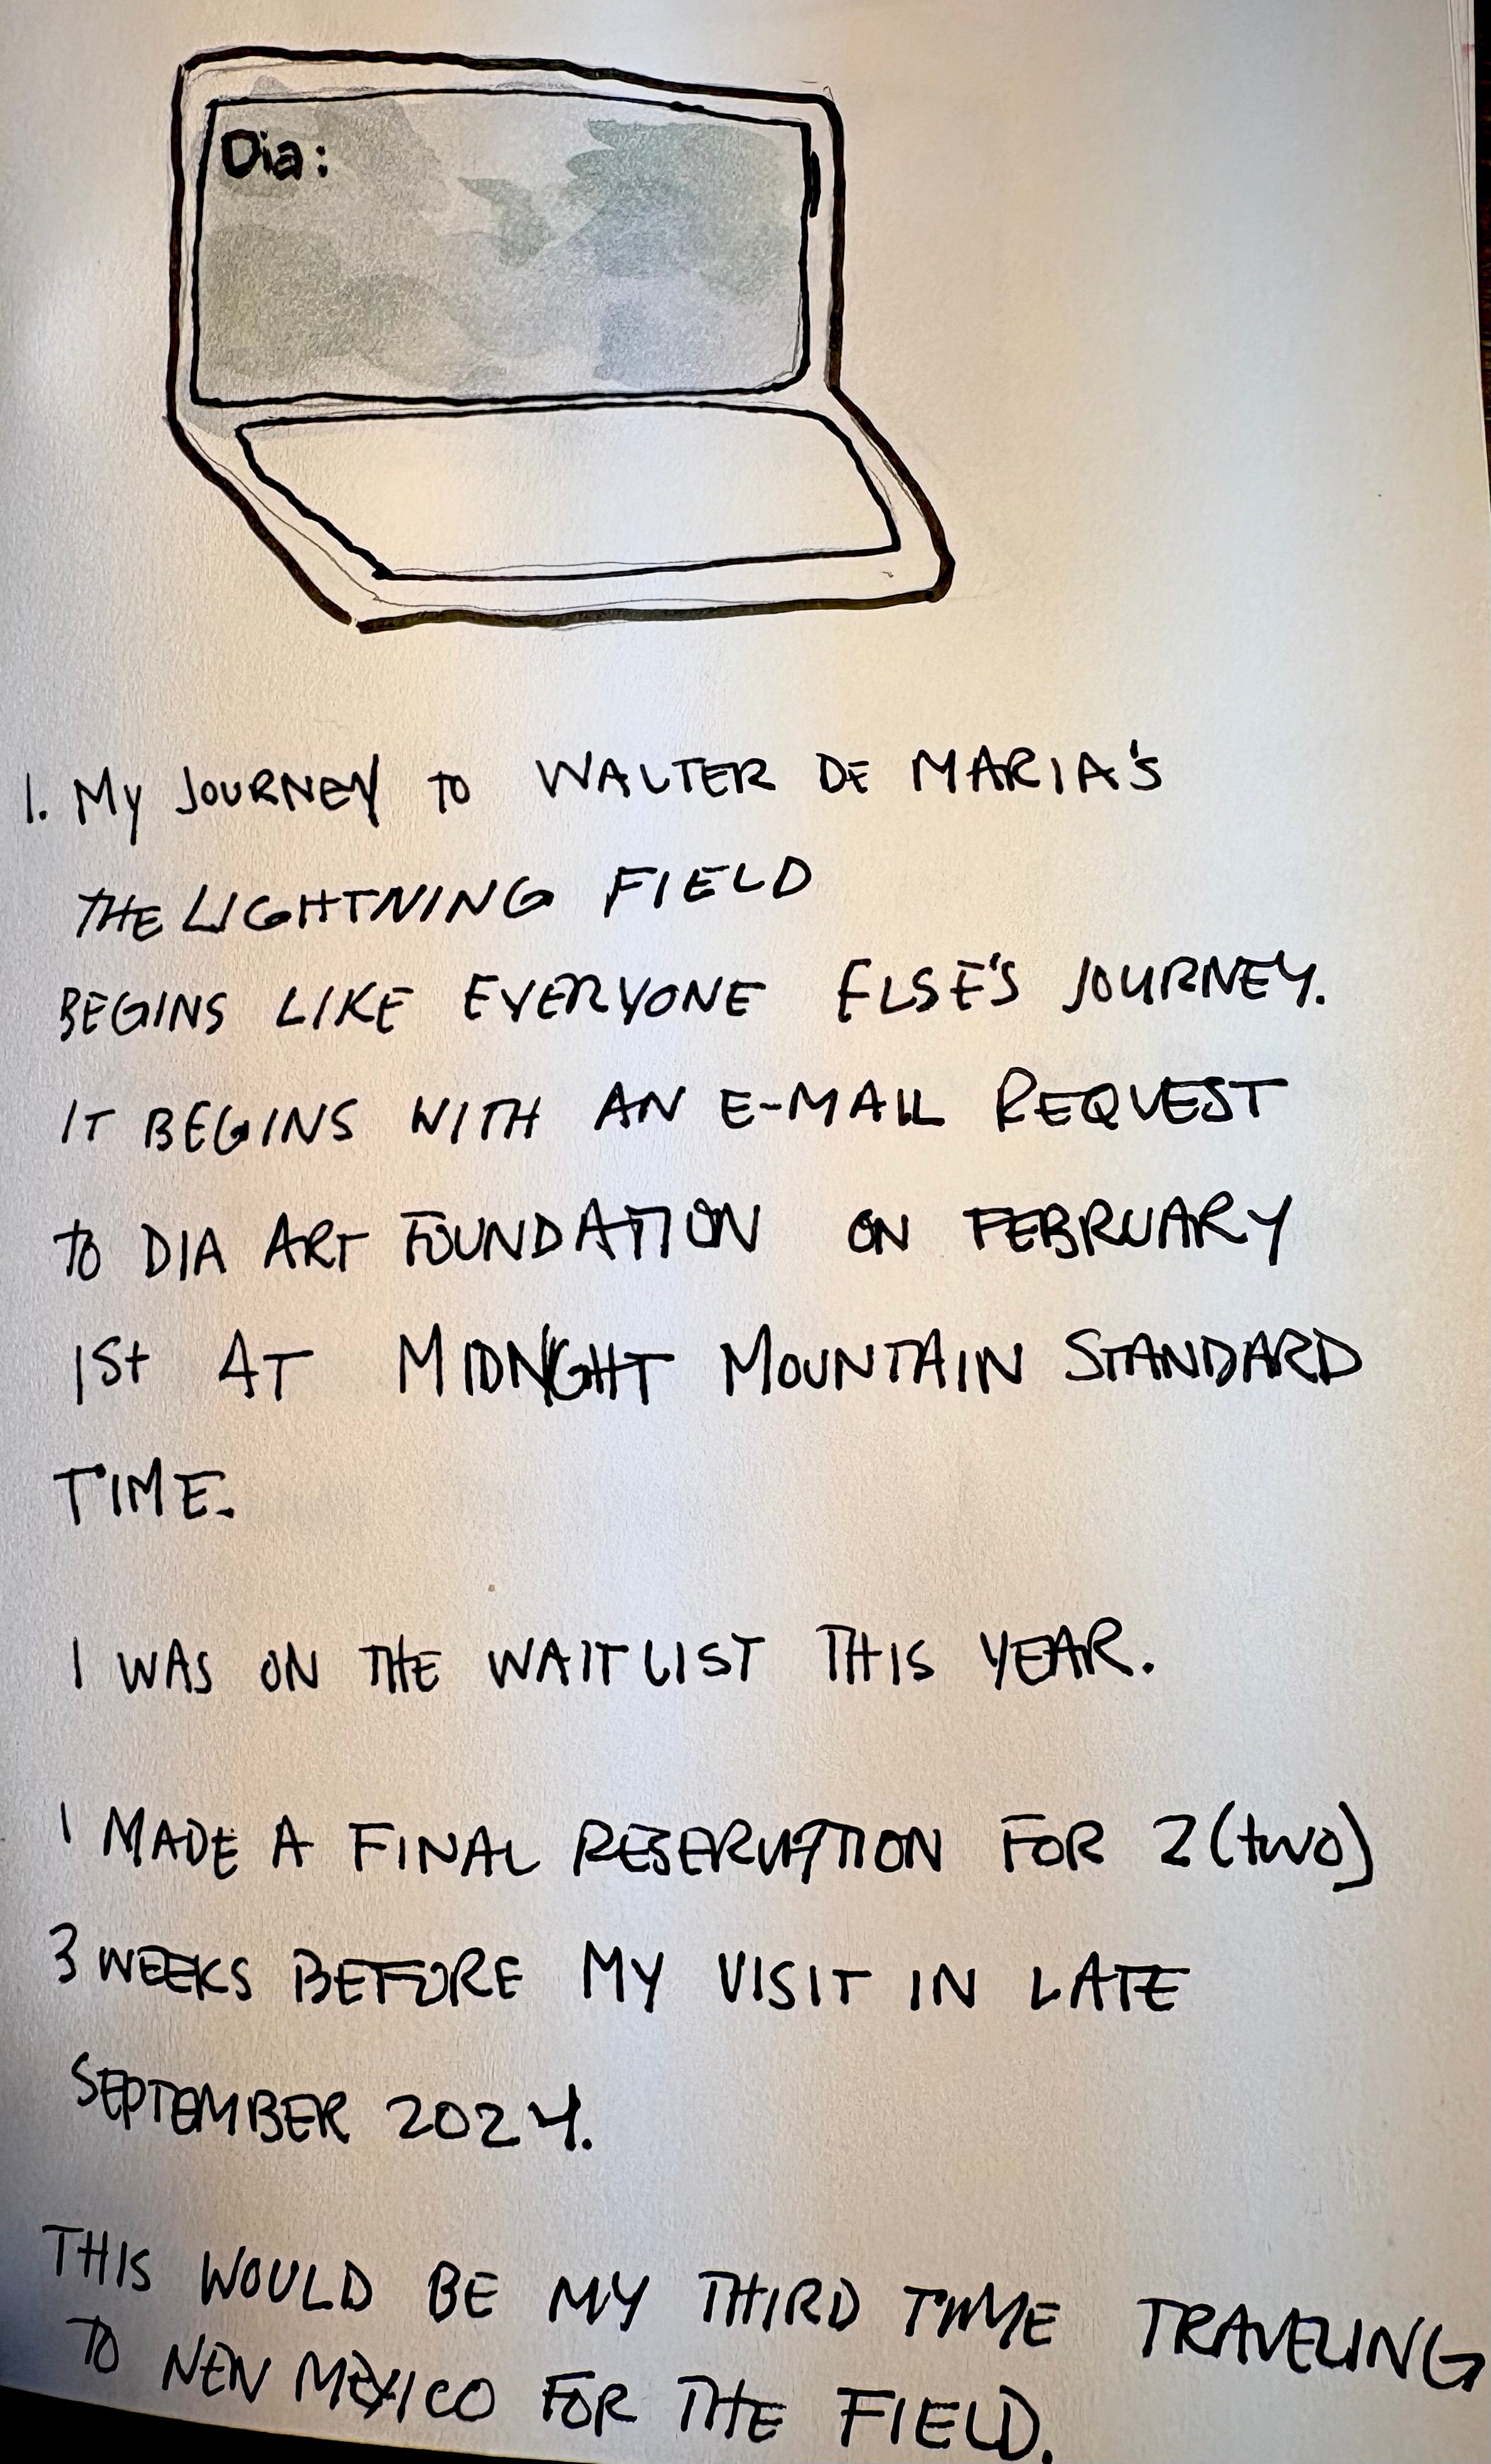 Dia:
1. My JOURNEY TO WALTER DE MARIA'S
THE LIGHTNING FIELD
BEGINS LIKE EVERYONE ELSE'S JOURNEY.
IT BEGINS WITH AN E-MAIL REQUEST
TO DIA ART FOUNDATION ON FEBRUARY
1St AT MIDNIGHT MOUNTAIN STANDARD
TIME.
I WAS ON THE WAITLIST THIS YEAR.
I MADE A FINAL RESERVATION FOR 2 (two)
3 WEEKS BEFORE MY VISIT IN LATE
SEPTEMBER 2024.
THIS WOULD BE MY THIRD TIME TRAVELING
TO NEW MEXICO FOR THE FIELD.